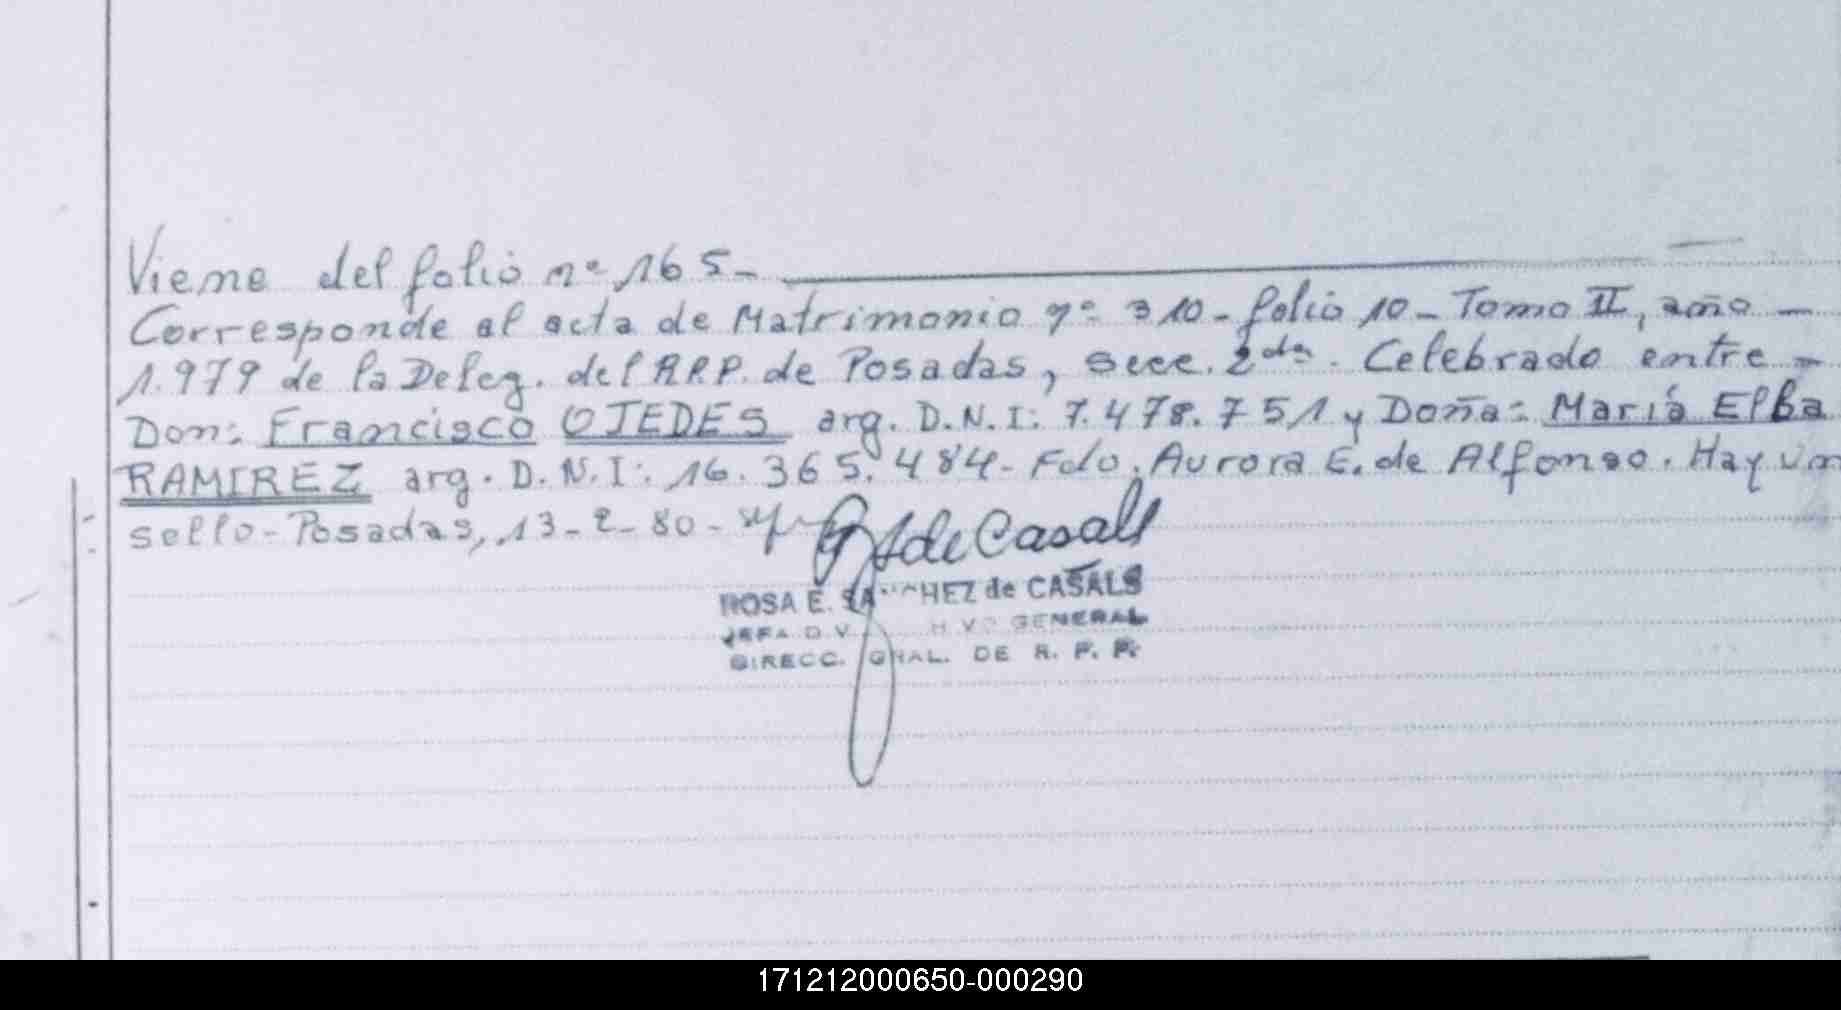 Viene del folio nº 165-
Corresponde al acta de Matrimonio nº 310- folio 10- Tomo II, año -
1.979 de la Deleg. del R.P.P. de Posadas, secc. 2da. Celebrado entre -
Don: Francisco OJEDES arg. D.N.I: 7.478.751 y Doña: María Elba
RAMIREZ arg. D.N.I: 16.365.484- Fdo. Aurora E. de Alfonso. Hay un
sello- Posadas, 13-2-80-
de Casals
ROSA E. SANCHEZ de CASALS
JEFA GENERAL
DIRECC. GRAL. DE R. P. P.
171212000650-000290